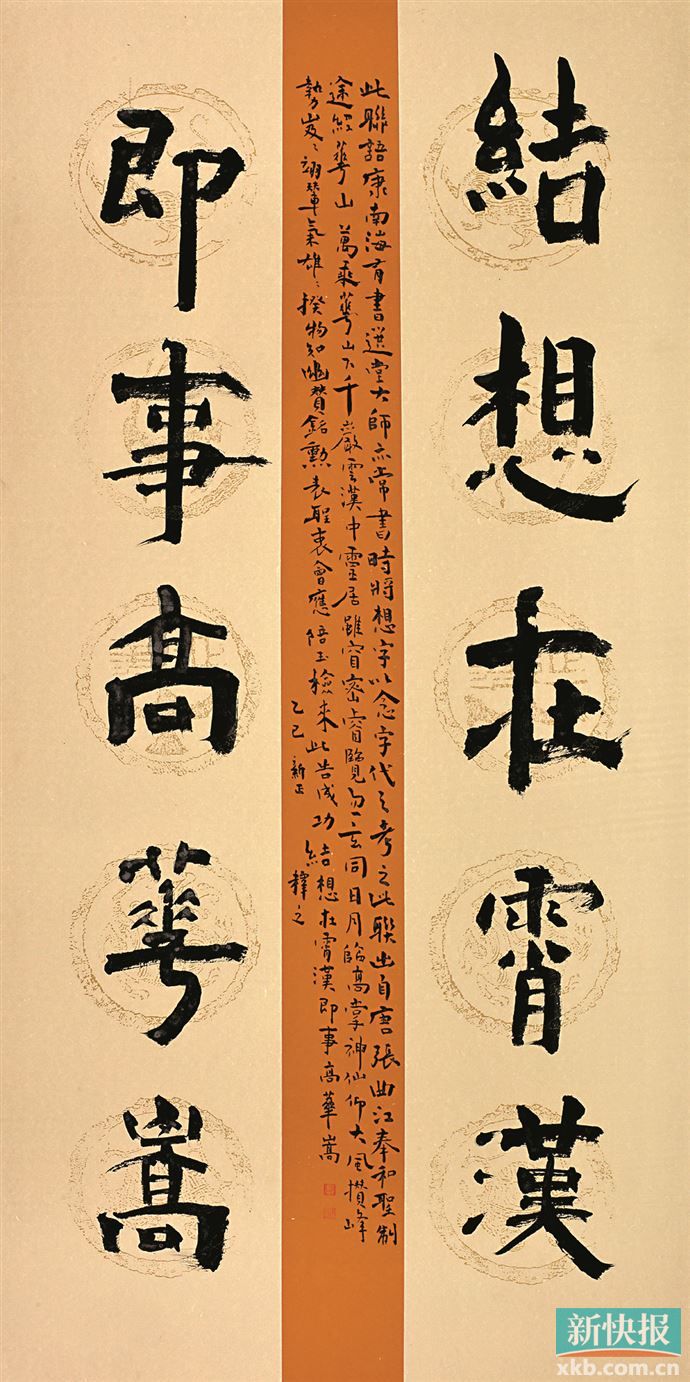 結想在霄漢
此聯語康南海有書選堂大師亦常書時將想字以念字代之考之此聯出自唐張曲江奉和聖制
途經華山 萬乘華山下千巖雲漢中靈居雖窅密睿覽忽玄同日月臨高掌神仙仰大風攢峰
勢岌〻翊輦氣雄〻揆物知幽贊銘勳表聖衷會應陪玉檢來此告成功 結想在霄漢即事高華嵩
乙巳新正 釋之
即事高華嵩
新快报
xkb.com.cn